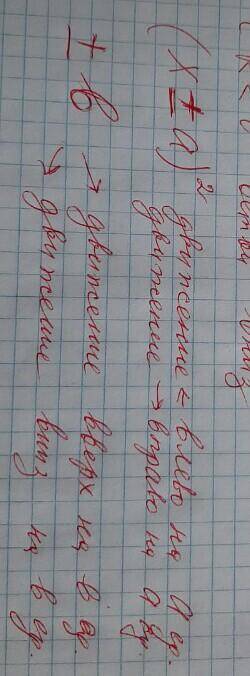 (x ± a)² движение ← влево на a ед.
движение → вправо на a ед.
± в → движение вверх на в ед.
↘ движение вниз на в ед.